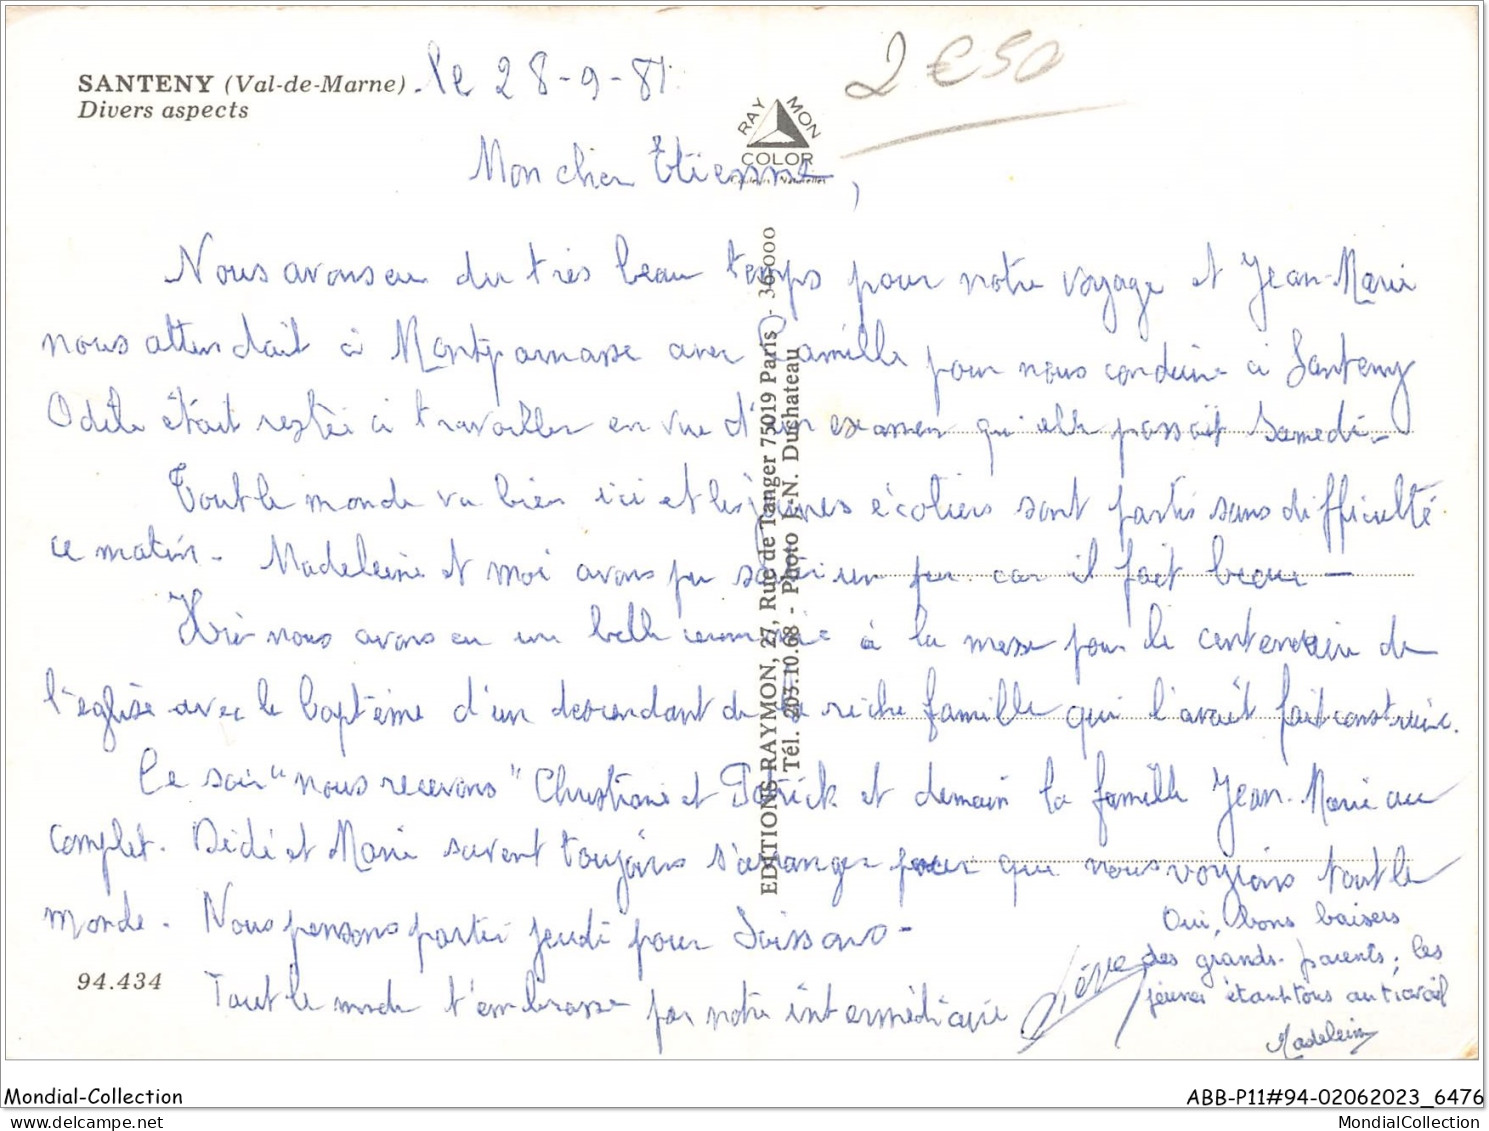 SANTENY (Val-de-Marne)
Divers aspects
le 28-9-81
2€50
RAYMON
COLOR
Mon cher Etienne,
Nous avons eu du très beau temps pour notre voyage et Jean-Marie
nous attendait à Montparnasse avec Camille pour nous conduire à Santeny
Odile était restée à travailler en vue d'un examen qu'elle passait samedi-
Tout le monde va bien ici et les jeunes écoliers sont partis sans difficulté
ce matin. Madeleine et moi avons pu sortir un peu car il fait beau -
Hier nous avons eu une belle cérémonie à la messe pour le centenaire de
l'église avec le baptême d'un descendant de la riche famille qui l'avait fait construire.
Ce soir "nous recevons" Christiane et Patrick et demain la famille Jean-Marie au
complet. Dédé et Marie savent toujours s'arranger pour que nous voyions tout le
monde. Nous pensons partir jeudi pour Soissons-
Tout le monde t'embrasse par notre intermédiaire
Oui, bons baisers
des grands-parents, les
jeunes étant tous au travail
Madeleine
EDITIONS RAYMON, 27, Rue de Tanger 75019 Paris - 36.000
Tél. 203.10.68 - Photo J.-N. Duchateau
94.434
Mondial-Collection
ABB-P11#94-02062023_6476
mondial-collection.com
MondialCollection